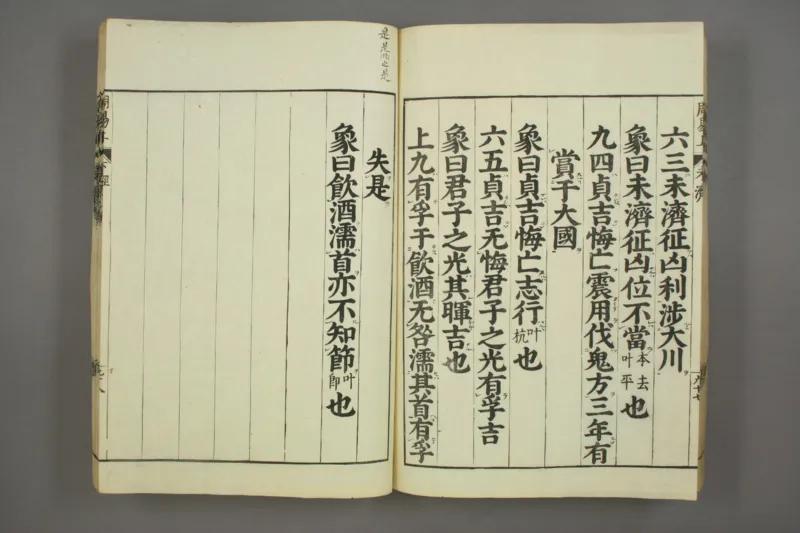 六三未濟征凶利涉大川
象曰未濟征凶位不當本去叶平也
九四貞吉悔亡震用伐鬼方三年有
賞于大國
象曰貞吉悔亡志行叶杭也
六五貞吉无悔君子之光有孚吉
象曰君子之光其暉吉也
上九有孚于飲酒无咎濡其首有孚
失是
象曰飲酒濡首亦不知節叶卽也